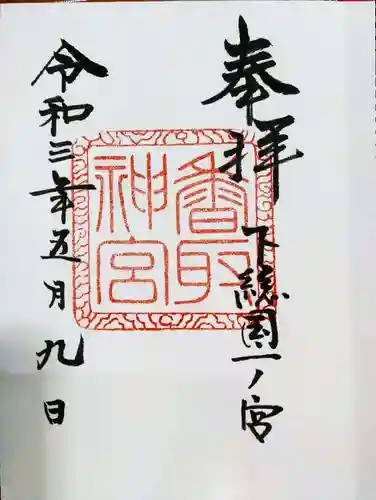 奉拝
下総国一ノ宮
香取
神宮
令和三年五月九日